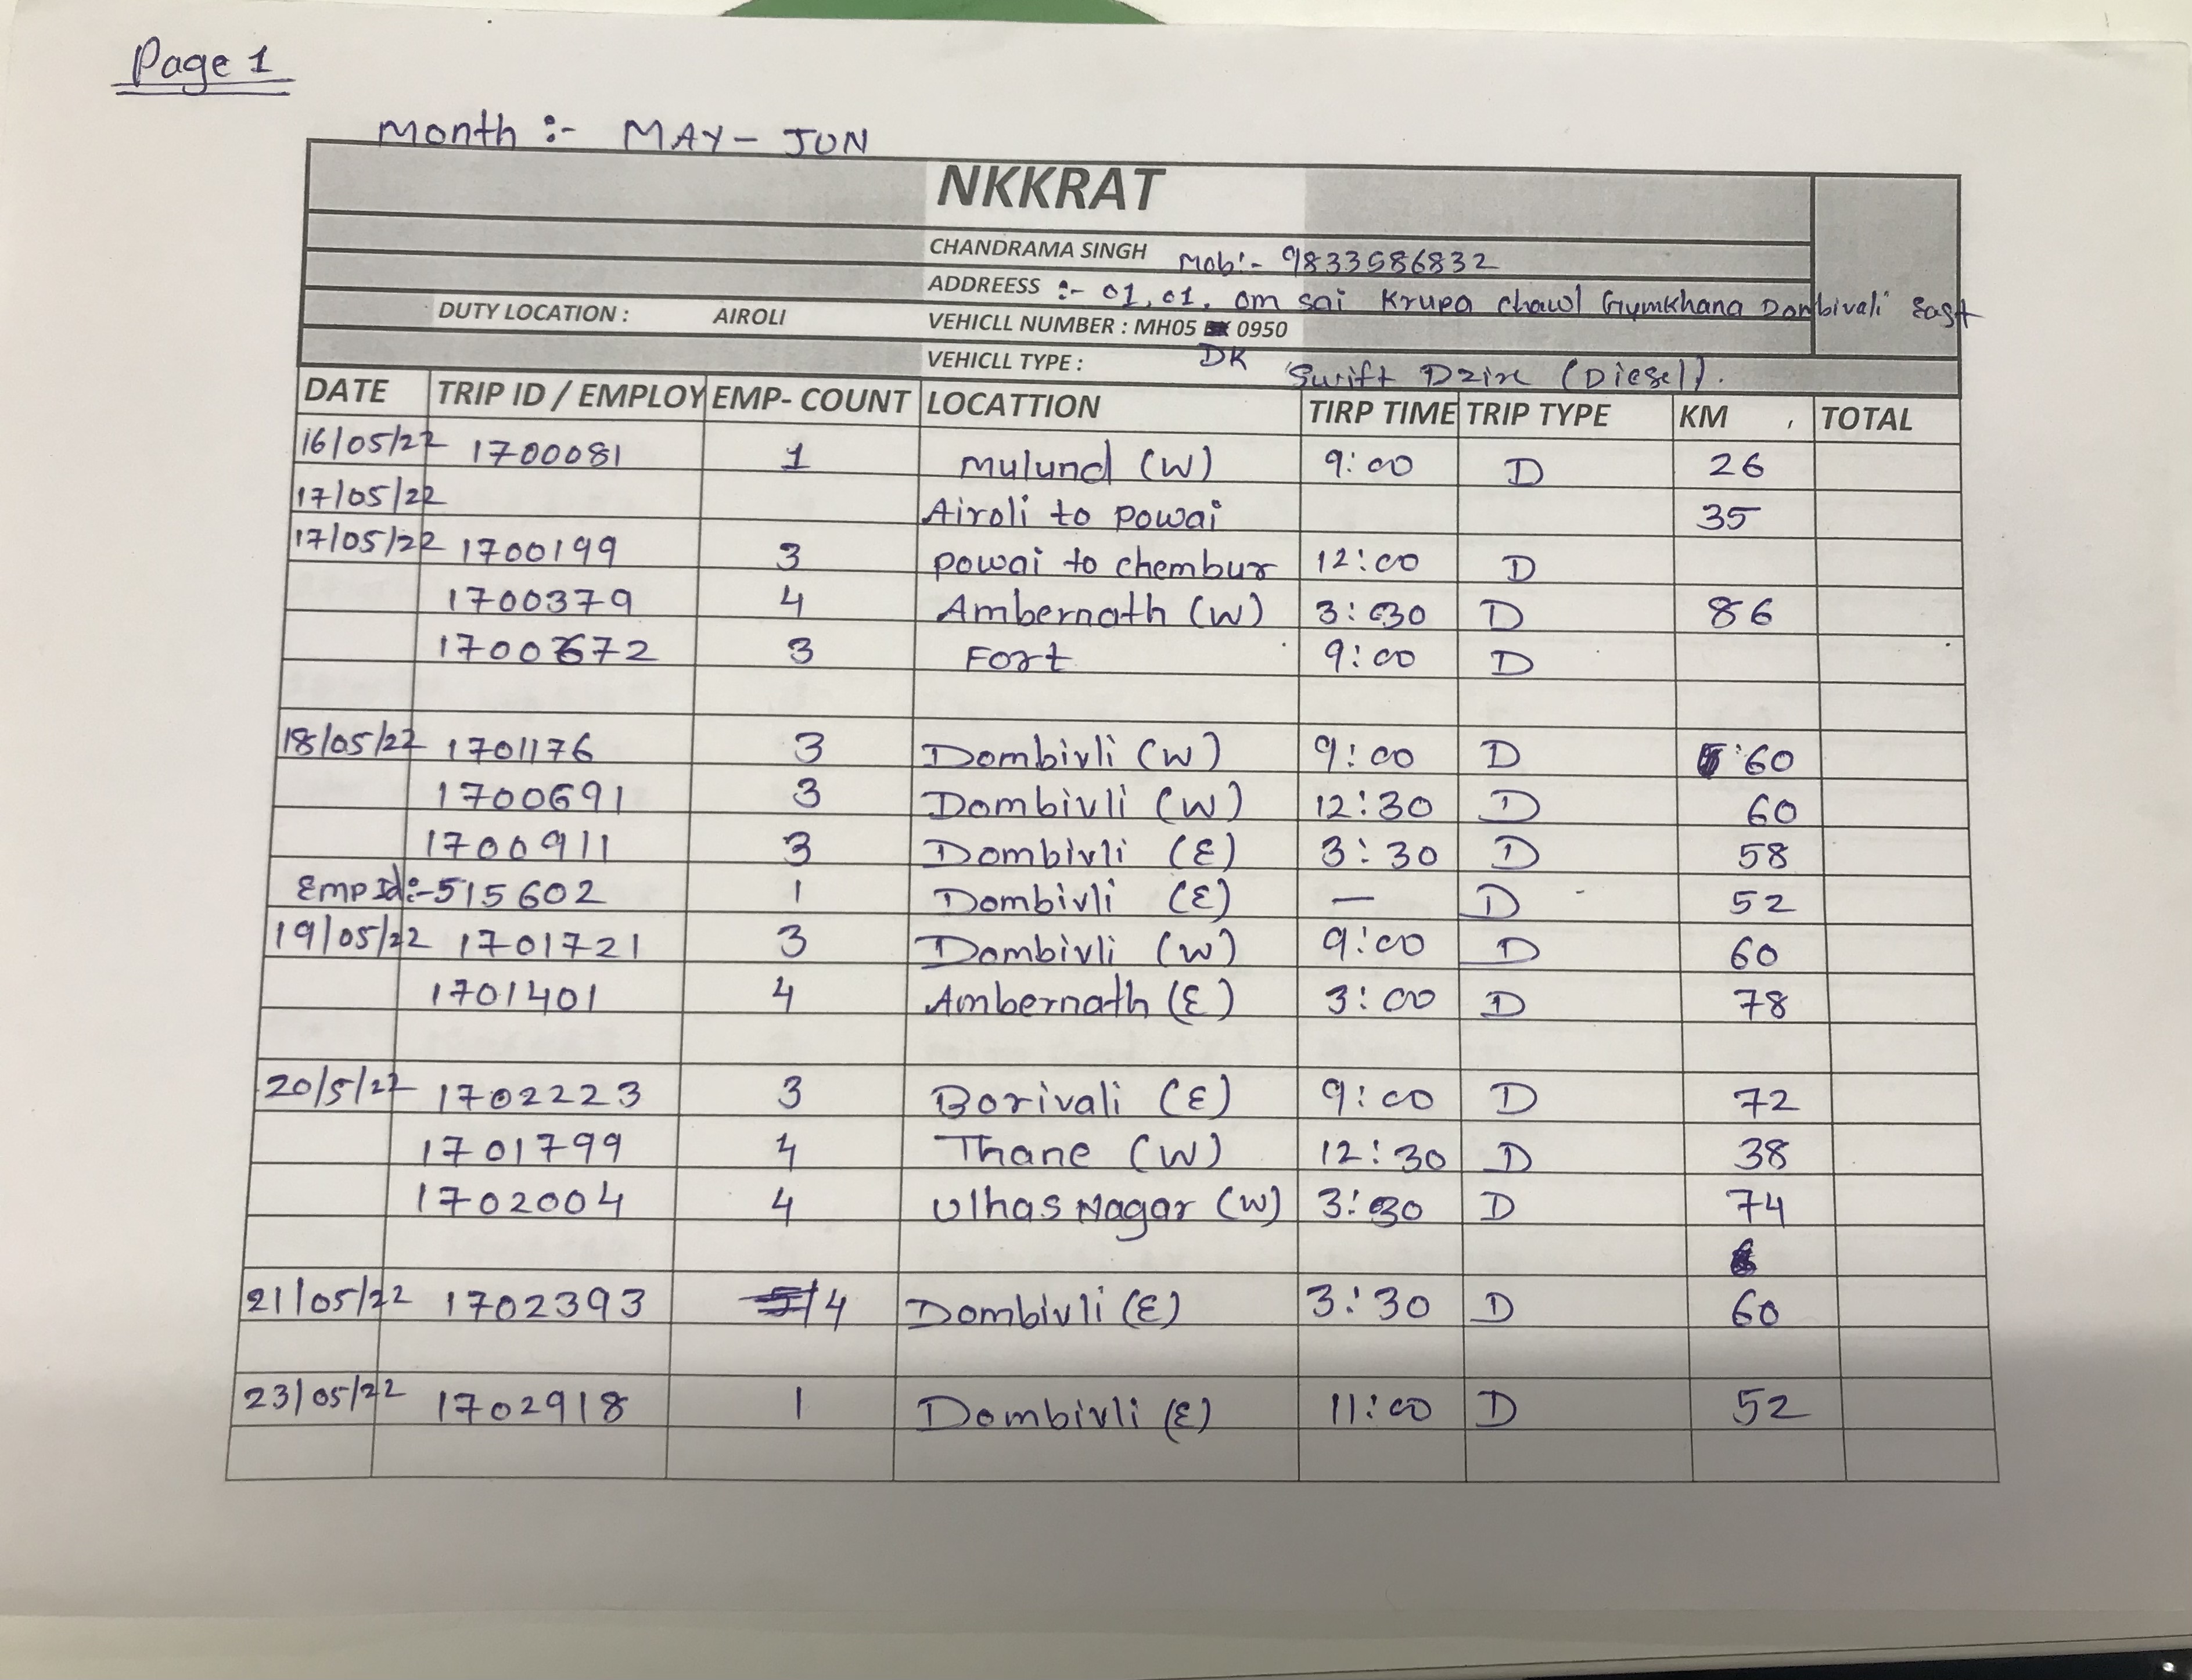 Page 1
Month :- MAY - JUN
NKKRAT
CHANDRAMA SINGH Mob:- 9833586832
ADDREESS :- 01, 01, om sai Krupa chawl Gymkhana Dombivali East
DUTY LOCATION : AIROLI VEHICLL NUMBER : MH05 0950
DK
VEHICLL TYPE : Swift Dzire (Diesel).
DATE TRIP ID / EMPLOY EMP- COUNT LOCATTION TIRP TIME TRIP TYPE KM TOTAL
16/05/22 1700081 1 Mulund (W) 9:00 D 26
17/05/22 Airoli to Powai 35
17/05/22 1700199 3 powai to chembur 12:00 D
1700379 4 Ambernath (W) 3:30 D 86
1700672 3 Fort 9:00 D
18/05/22 1701176 3 Dombivli (W) 9:00 D 60
1700691 3 Dombivli (W) 12:30 D 60
1700911 3 Dombivli (E) 3:30 D 58
Emp Id:-515602 1 Dombivli (E) — D 52
19/05/22 1701721 3 Dombivli (W) 9:00 D 60
1701401 4 Ambernath (E) 3:00 D 78
20/5/22 1702223 3 Borivali (E) 9:00 D 72
1701799 4 Thane (W) 12:30 D 38
1702004 4 Ulhas Nagar (W) 3:30 D 74
21/05/22 1702393 4 Dombivli (E) 3:30 D 60
23/05/22 1702918 1 Dombivli (E) 11:00 D 52